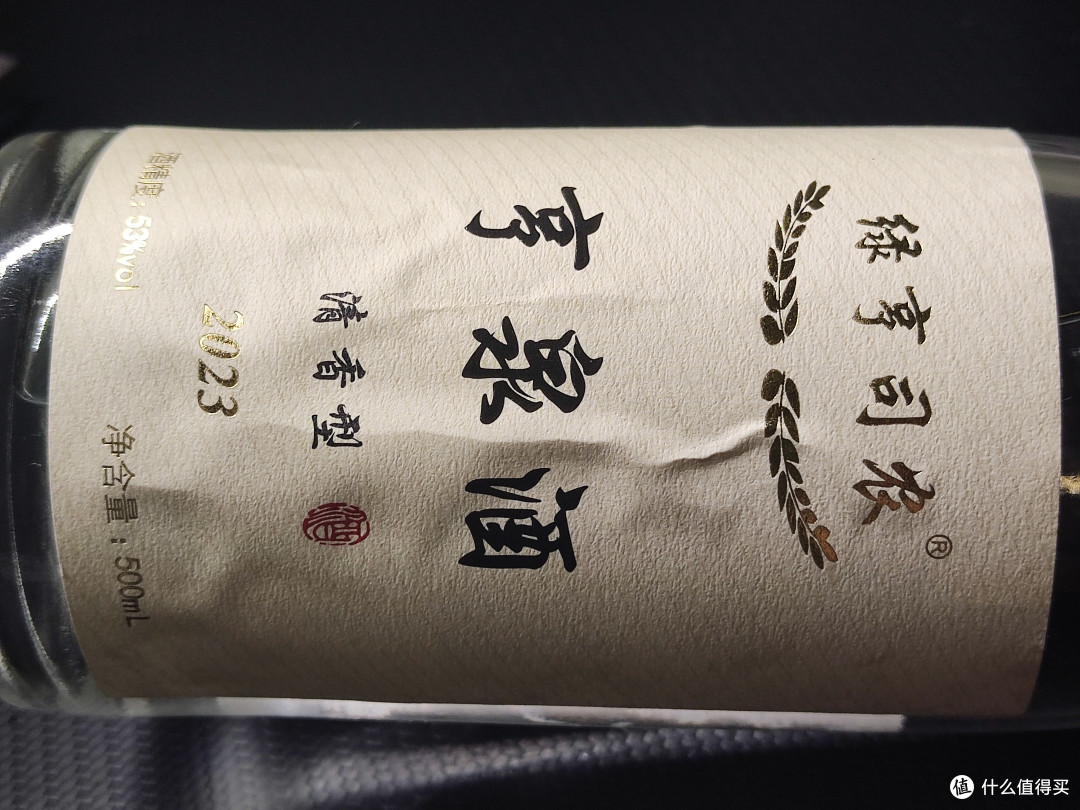 绿亨司农®
亨泉酒
清香型
酒
2023
酒精度：53%vol 净含量：500mL
值 什么值得买